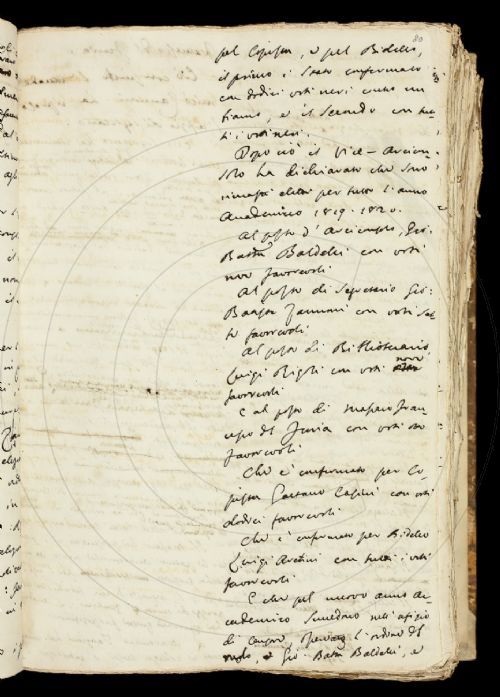 80
pel Copista, e pel Bidello,
il primo è stato confermato
con dodici voti neri contro un
bianco, e il secondo con tut-
ti i voti neri.
Dopo ciò il Vice-Arcicon-
solo ha dichiarato che sono
rimasti eletti per tutto l'anno
Accademico 1819. 1820.
Al posto d'Arciconsolo, Gio:
Batta Baldelli con voti
nove favorevoli
Al posto di Segretario Gio:
Batista Zannoni con voti set-
te favorevoli
Al posto di Bibliotecario
Luigi Rigoli con voti nove
favorevoli.
E al posto di Massaio Fran-
cesco del Furia con voti otto
favorevoli
Che è confermato per Co-
pista Gaetano Casini con voti
dodici favorevoli
Che è confermato per Bidello
Luigi con tutti i voti
favorevoli
E che pel nuovo anno Ac-
cademico succedono nell'ufizio
di Censore l'ordine del
ruolo, Gio: Batta Baldelli, e